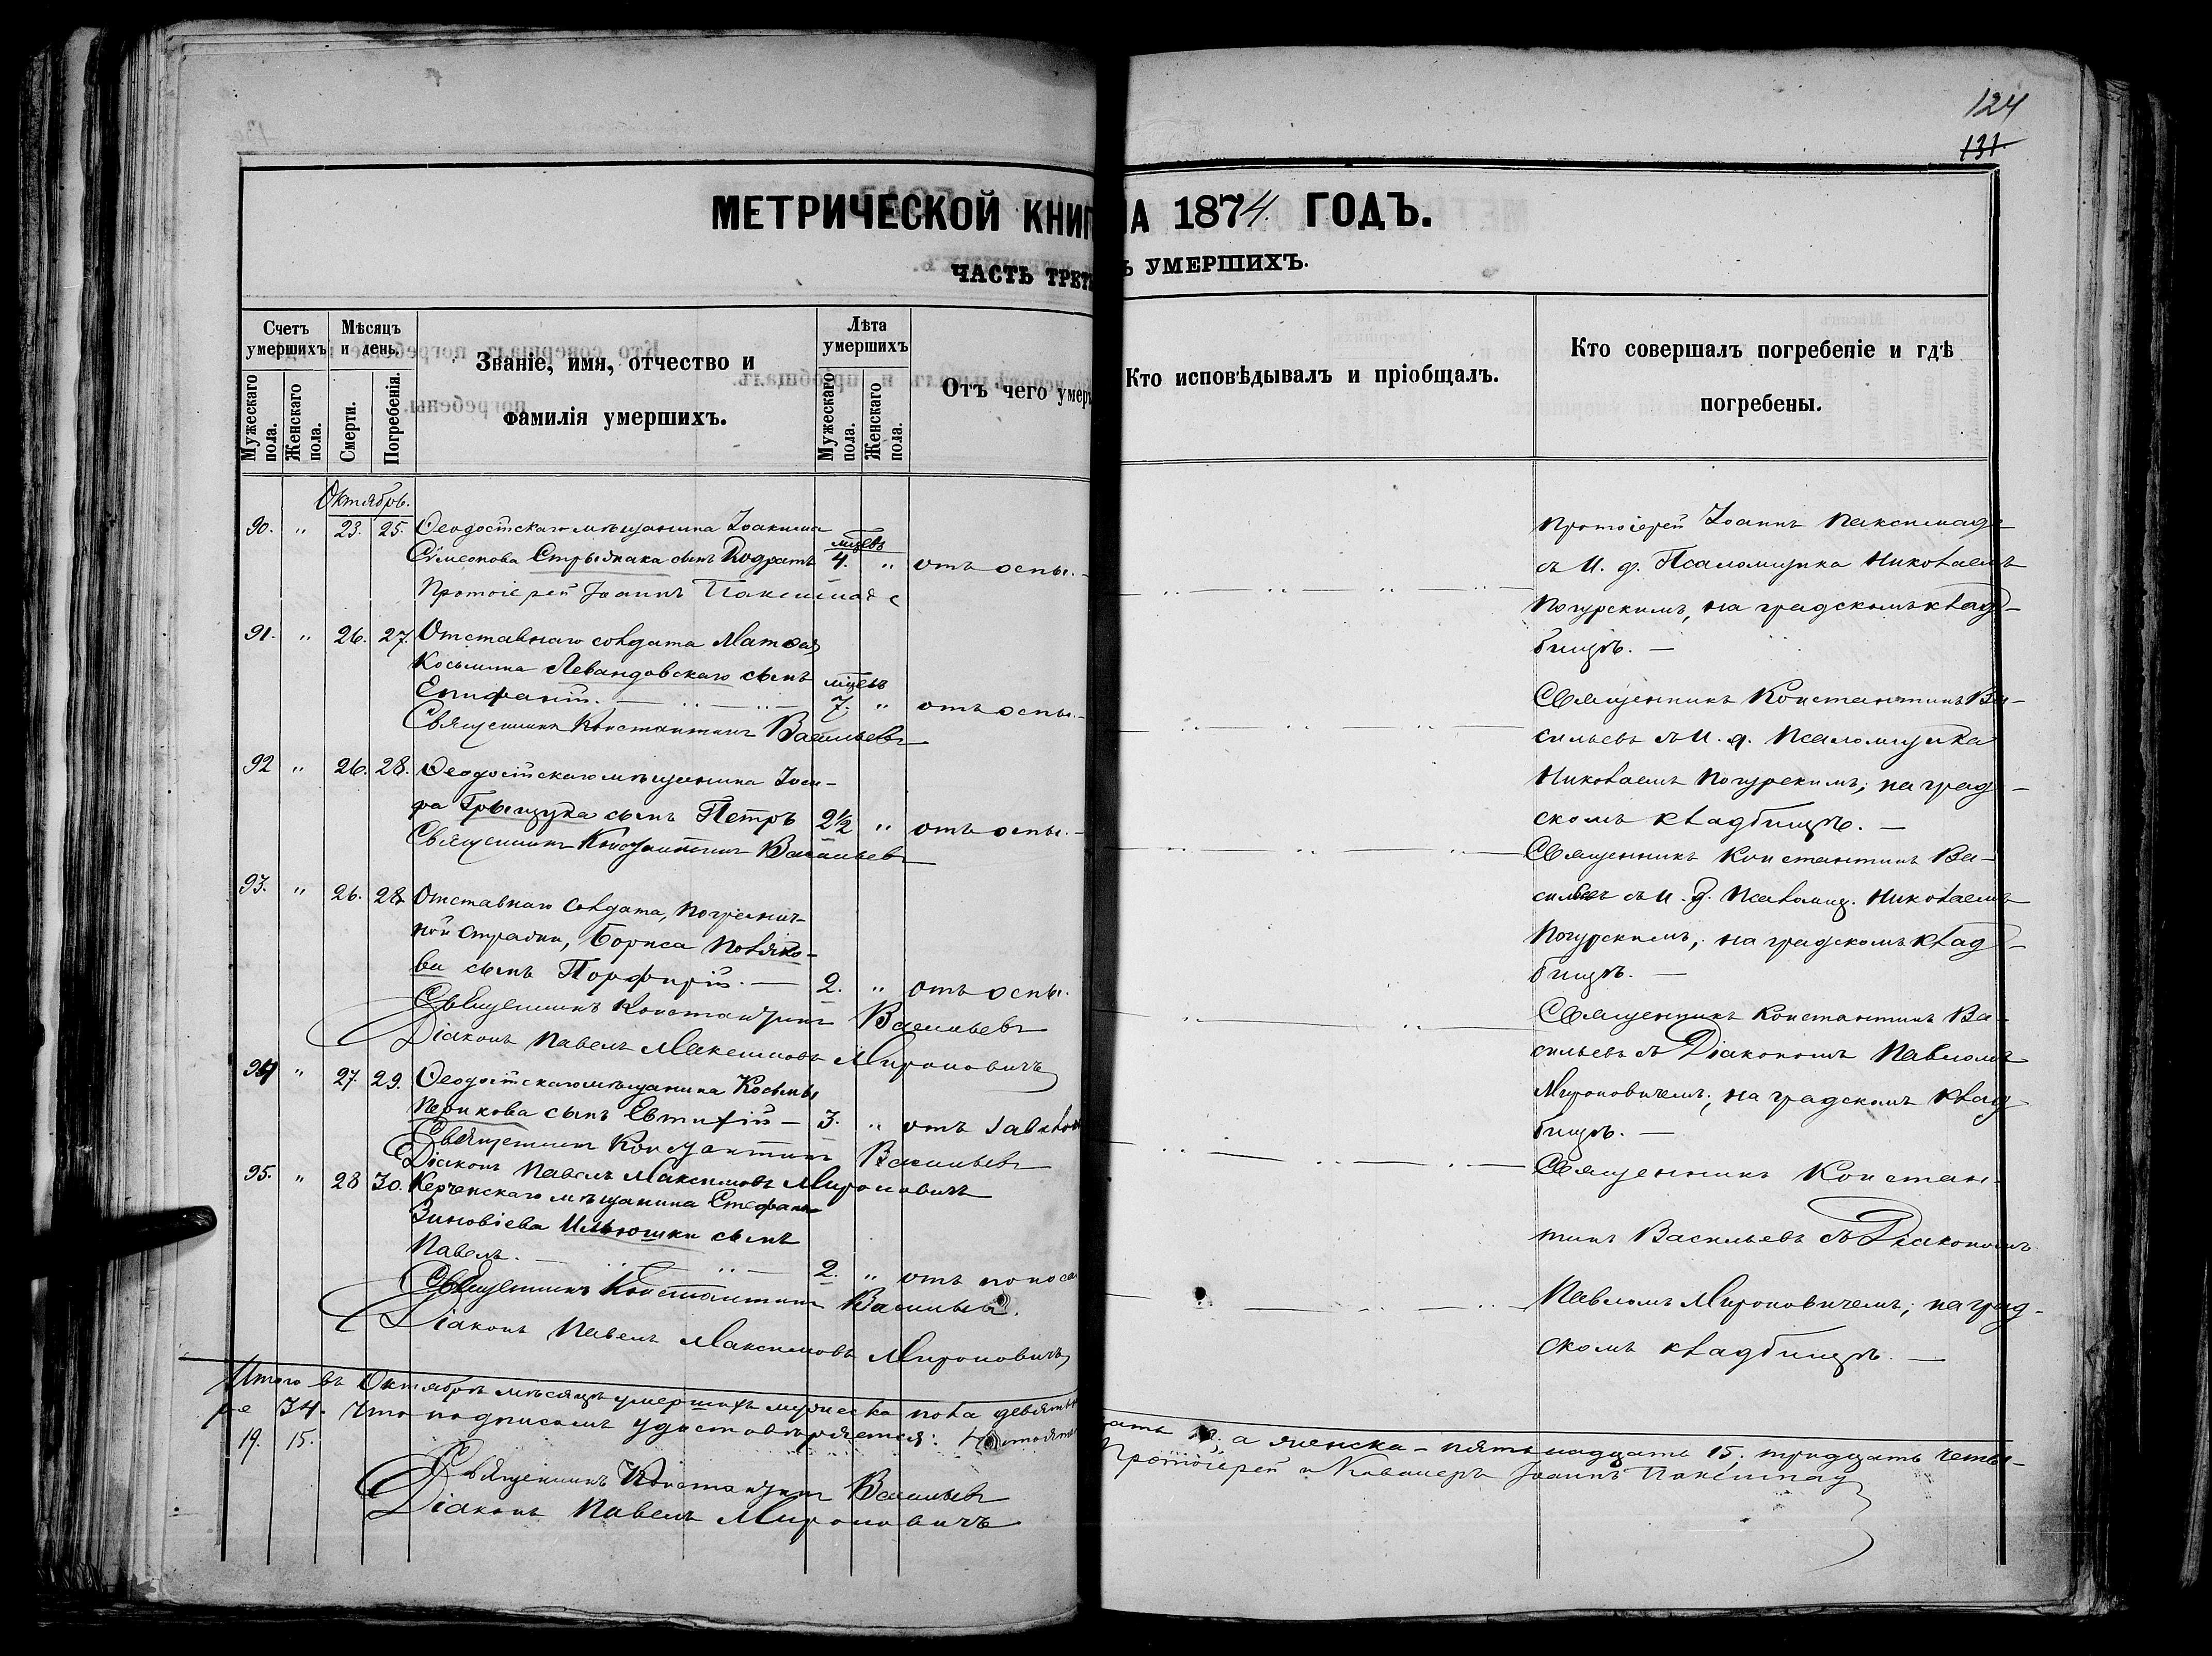 124
131
МЕТРИЧЕСКОЙ КНИГ
НА 1874 ГОДЪ.
ЧАСТЬ ТРЕТ
Ъ УМЕРШИХЪ.
Счетъ умершихъ
Мужескаго пола.
Женскаго пола.
Мѣсяцъ и день.
Смерти.
Погребенія.
Званіе, имя, отчество и
фамилія умершихъ.
Лѣта умершихъ
Мужескаго пола.
Женскаго пола.
Отъ чего умер
Кто исповѣдывалъ и пріобщалъ.
Кто совершалъ погребеніе и гдѣ
погребены.
Октябрь.
90. " 23. 25. Ѳеодосійскаго мѣщанина Іоакима
Сѵмеонова сынъ Кодратъ мцевъ 4. " отъ оспы. -
Протоіерей Іоаннъ
91. " 26. 27. Отставнаго солдата Матѳея
Косьмина Левандовскаго сынъ мцевъ
Епифаній. 7. " отъ оспы. -
Священникъ Константинъ Васильевъ
92 " 26. 28. Ѳеодосійскаго мѣщанина Іоси-
фа Грыщука сынъ Петръ 2½ " отъ оспы. -
Священникъ Константинъ Васильевъ
93. " 26. 28. Отставнаго солдата, погранич-
ной стражи, Бориса Поляко-
ва сынъ Порфирій. — 2. " отъ оспы.
Священникъ Константинъ Васильевъ
Діаконъ Павелъ Максимовъ Мироновичъ
94 " 27. 29. Ѳеодосійскаго мѣщанина Косьмы
сынъ Евтихій — 3. " отъ
Священникъ Константинъ Васильевъ
Діаконъ Павелъ Максимовъ Мироновичъ
95. " 28 30. Керченскаго мѣщанина Стефана
Зиновіева Ильюшки сынъ
Павелъ. 2. " отъ поноса
Священникъ Константинъ Васильевъ.
Діаконъ Павелъ Максимовъ Мироновичъ
Протоіерей Іоаннъ
съ И. д. Псаломщика Николаемъ
на градскомъ клад-
бищѣ. —
Священникъ Константинъ Ва-
сильевъ съ И. д. Псаломщика
Николаемъ на град-
скомъ кладбищѣ. —
Священникъ Константинъ Ва-
сильевъ съ И. д. Псаломщ. Николаемъ
на градскомъ клад-
бищѣ. —
Священникъ Константинъ Ва-
сильевъ съ Діакономъ Павломъ
Мироновичемъ; на градскомъ клад-
бищѣ. —
Священникъ Констан-
тинъ Васильевъ съ Діакономъ
Павломъ Мироновичемъ; на град-
скомъ кладбищѣ. —
Итого въ Октябрѣ мѣсяцѣ умершихъ мужеска пола девятн
ать 19, а женска - пятьнадцать 15. тридцать четы-
ре 34. Что подписомъ удостовѣряется:
19. 15.
Протоіерей и Кавалеръ Іоаннъ
Священникъ Константинъ Васильевъ
Діаконъ Павелъ Мироновичъ